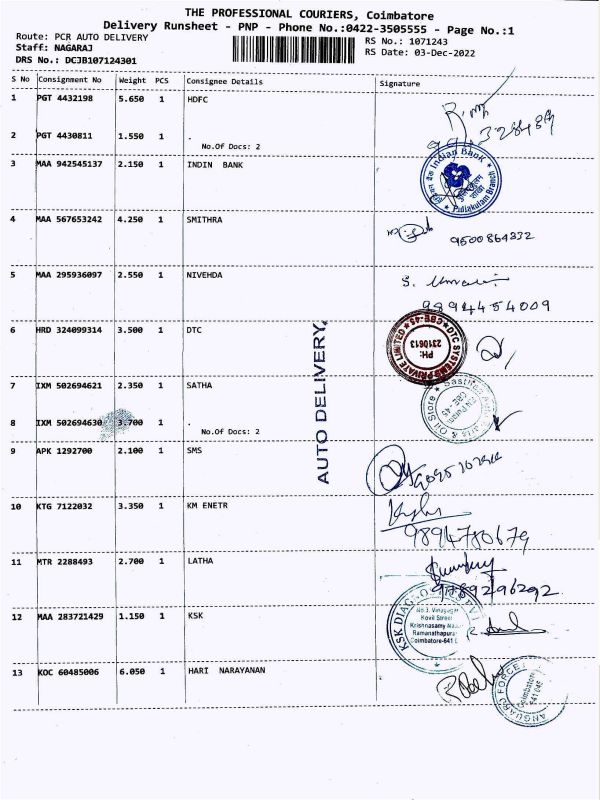 THE PROFESSIONAL COURIERS, Coimbatore
Delivery Runsheet - PNP - Phone No.:0422-3505555 - Page No.:1
Route: PCR AUTO DELIVERY
Staff: NAGARAJ
DRS No.: DCJB107124301
RS No.: 1071243
RS Date: 03-Dec-2022
S No Consignment No Weight PCS Consignee Details Signature
1 PGT 4432198 5.650 1 HDFC
2 PGT 4430811 1.550 1 .
No.Of Docs: 2
3 MAA 942545137 2.150 1 INDIN BANK
Indian Bank
Puliakulam Branch
4 MAA 567653242 4.250 1 SMITHRA
9500864332
5 MAA 295936097 2.550 1 NIVEHDA
9894454009
6 HRD 324099314 3.500 1 DTC
DTC SYSTEMS PRIVATE LIMITED ★ CBE-45 ★
PH:
2310613
AUTO DELIVERY.
7 IXM 502694621 2.350 1 SATHA
& Oil Store
CBE - 45
8 IXM 502694630 3.700 1 .
No.Of Docs: 2
9 APK 1292700 2.100 1 SMS
10 KTG 7122032 3.350 1 KM ENETR
9894780679
11 MTR 2288493 2.700 1 LATHA
9789296292
12 MAA 283721429 1.150 1 KSK
KSK
Kovil Street
Ramanathapuram
Coimbatore-641
13 KOC 60485006 6.050 1 HARI NARAYANAN
FORCE
Coimbatore
641 045